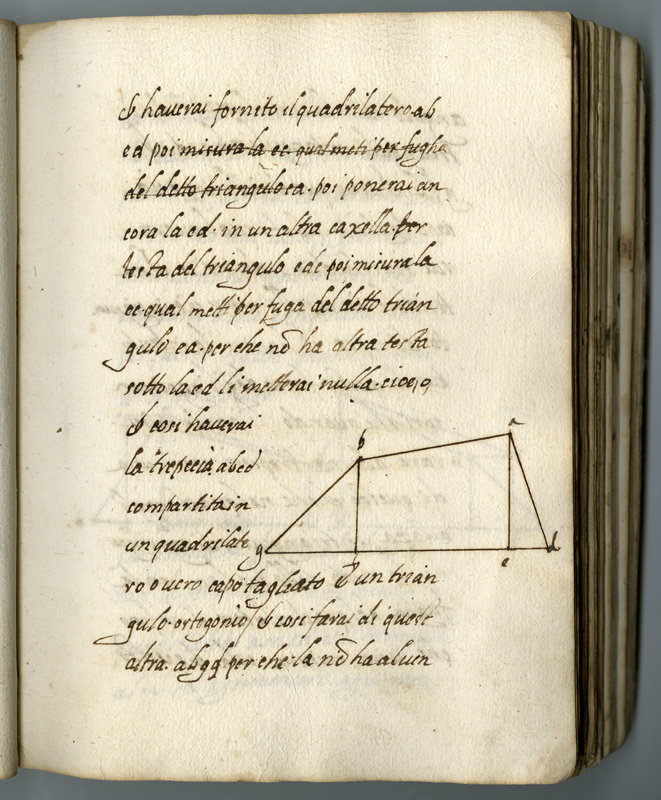 & haverai fornito il quadrilatero ab
ed poi misura la ec qual meti per fugha
del detto triangulo ea. poi ponerai an
cora la ed. in un altra caxella. per
testa del triangulo edc poi misura la
ec qual metti per fuga del detto trian
gulo ea. per che nō ha altra testa
sotto la ed li metterai nulla. cioe, o,
& cosi haverai
la trepecia abcd
compartita in
un quadrilate
ro o vero capo tagliato & un trian
gulo. ortogonio / & cosi farai di quest
altra. abgd per che la nō ha alcun
b
a
g
f
e
d